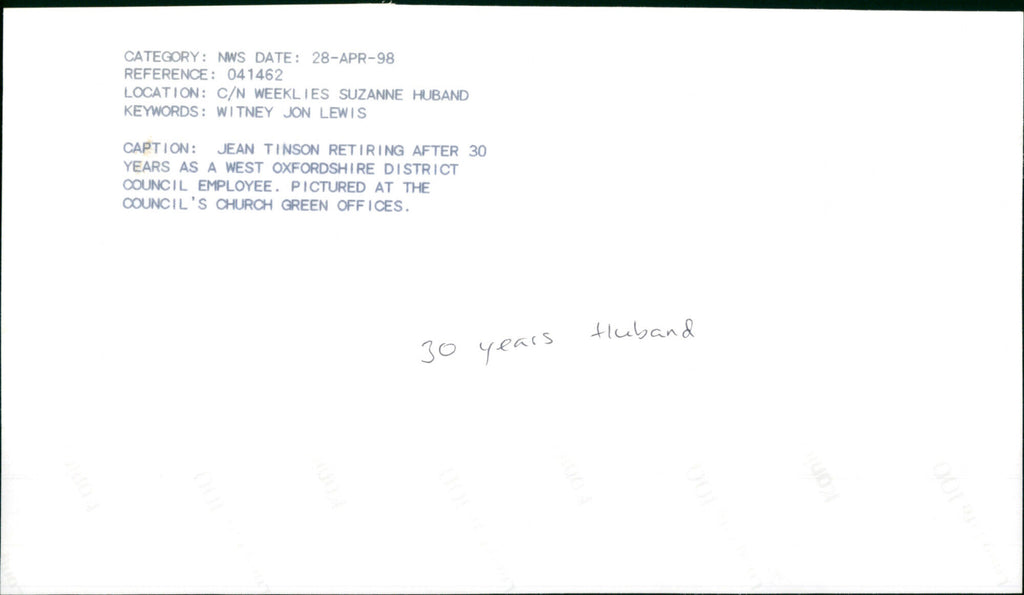 CATEGORY: NWS DATE: 28-APR-98
REFERENCE: 041462
LOCATION: C/N WEEKLIES SUZANNE HUBAND
KEYWORDS: WITNEY JON LEWIS
CAPTION: JEAN TINSON RETIRING AFTER 30
YEARS AS A WEST OXFORDSHIRE DISTRICT
COUNCIL EMPLOYEE. PICTURED AT THE
COUNCIL'S CHURCH GREEN OFFICES.
30 years Huband